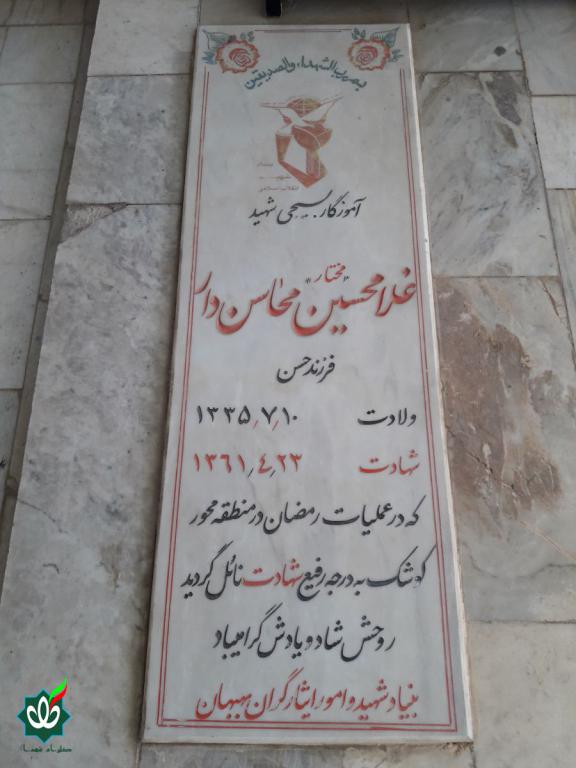 بنیاد
شهید
انقلاب اسلامی
آموزگار بسیجی شهید
"مختار"
غلامحسین محاسن دار
فرزند حسن
ولادت ۱۳۳۵٫۷٫۱۰
شهادت ۱۳۶۱٫۴٫۲۳
که در عملیات رمضان در منطقه محور
کوشک به درجه رفیع شهادت نائل گردید
روحش شاد و یادش گرامیباد
بنیاد شهید و امور ایثارگران بهبهان